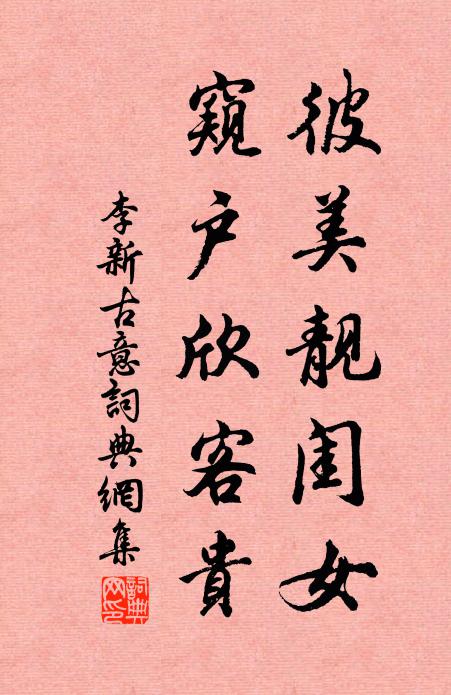 彼美靚闺女
窺户欣客貴
李新古意詞典網集
詞典网印